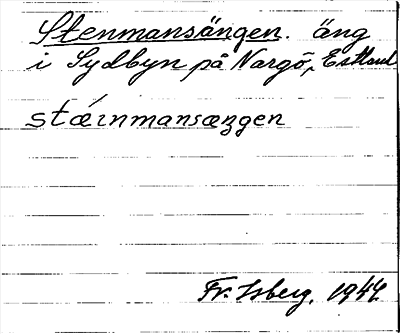 Stenmansängen. äng
i Sydbyn på Nargö, Estland
stǽinmansæŋen
Fr. Isberg. 1944